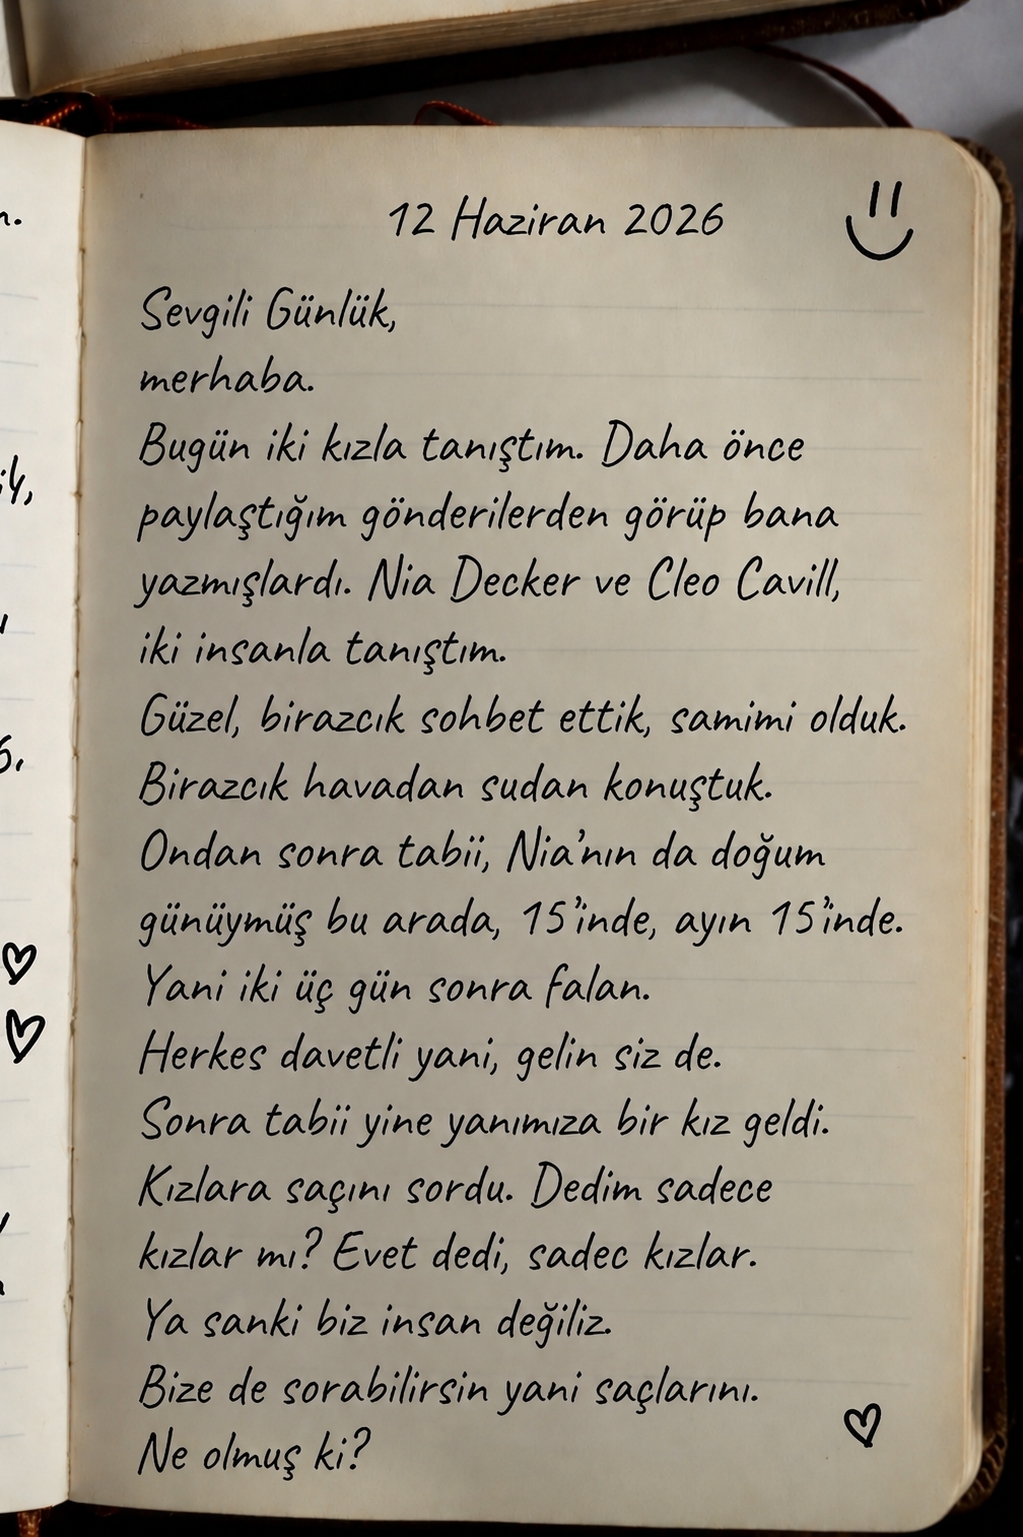 12 Haziran 2026
Sevgili Günlük,
merhaba.
Bugün iki kızla tanıştım. Daha önce
paylaştığım gönderilerden görüp bana
yazmışlardı. Nia Decker ve Cleo Cavill,
iki insanla tanıştım.
Güzel, birazcık sohbet ettik, samimi olduk.
Birazcık havadan sudan konuştuk.
Ondan sonra tabii, Nia'nın da doğum
günüymüş bu arada, 15'inde, ayın 15'inde.
Yani iki üç gün sonra falan.
Herkes davetli yani, gelin siz de.
Sonra tabii yine yanımıza bir kız geldi.
Kızlara saçını sordu. Dedim sadece
kızlar mı? Evet dedi, sadec kızlar.
Ya sanki biz insan değiliz.
Bize de sorabilirsin yani saçlarını.
Ne olmuş ki?